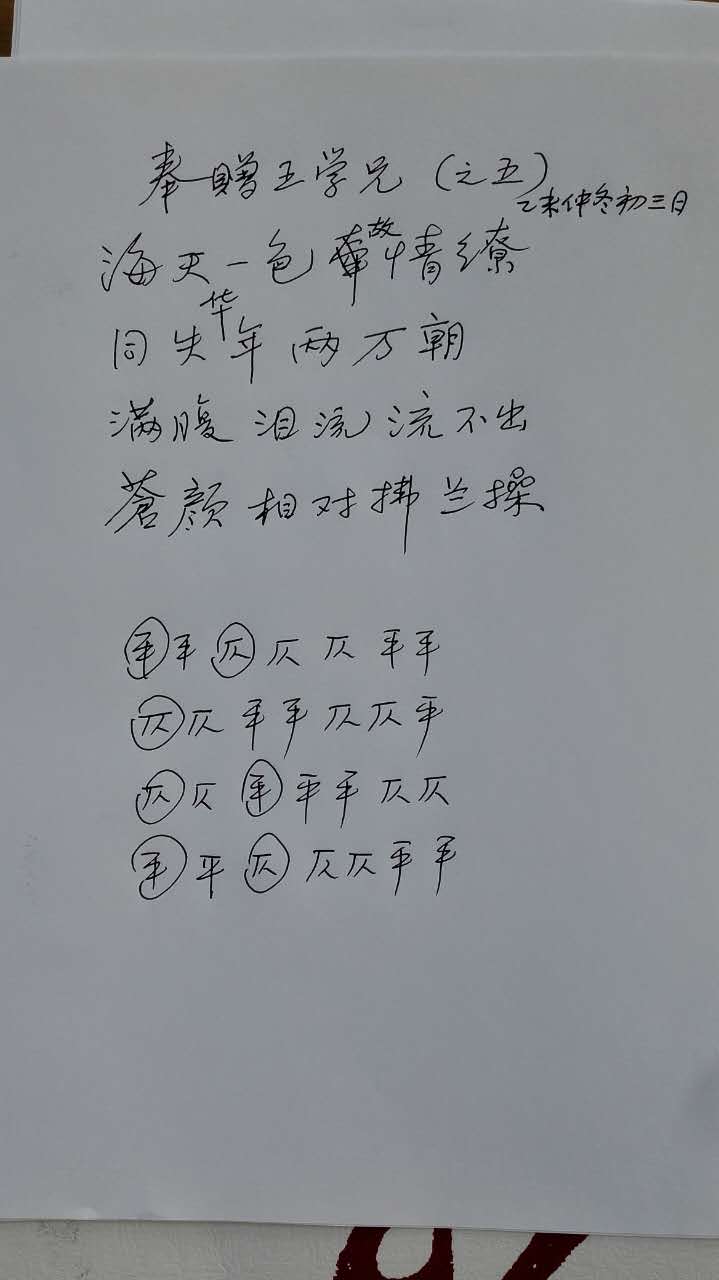 奉赠王学兄(之五)
乙未仲冬初三日
海天一色故情缭
同失华年两万朝
满腹泪流流不出
蒼颜相对拂兰操
平平仄仄仄平平
仄仄平平仄仄平
仄仄平平平仄仄
平平仄仄仄平平